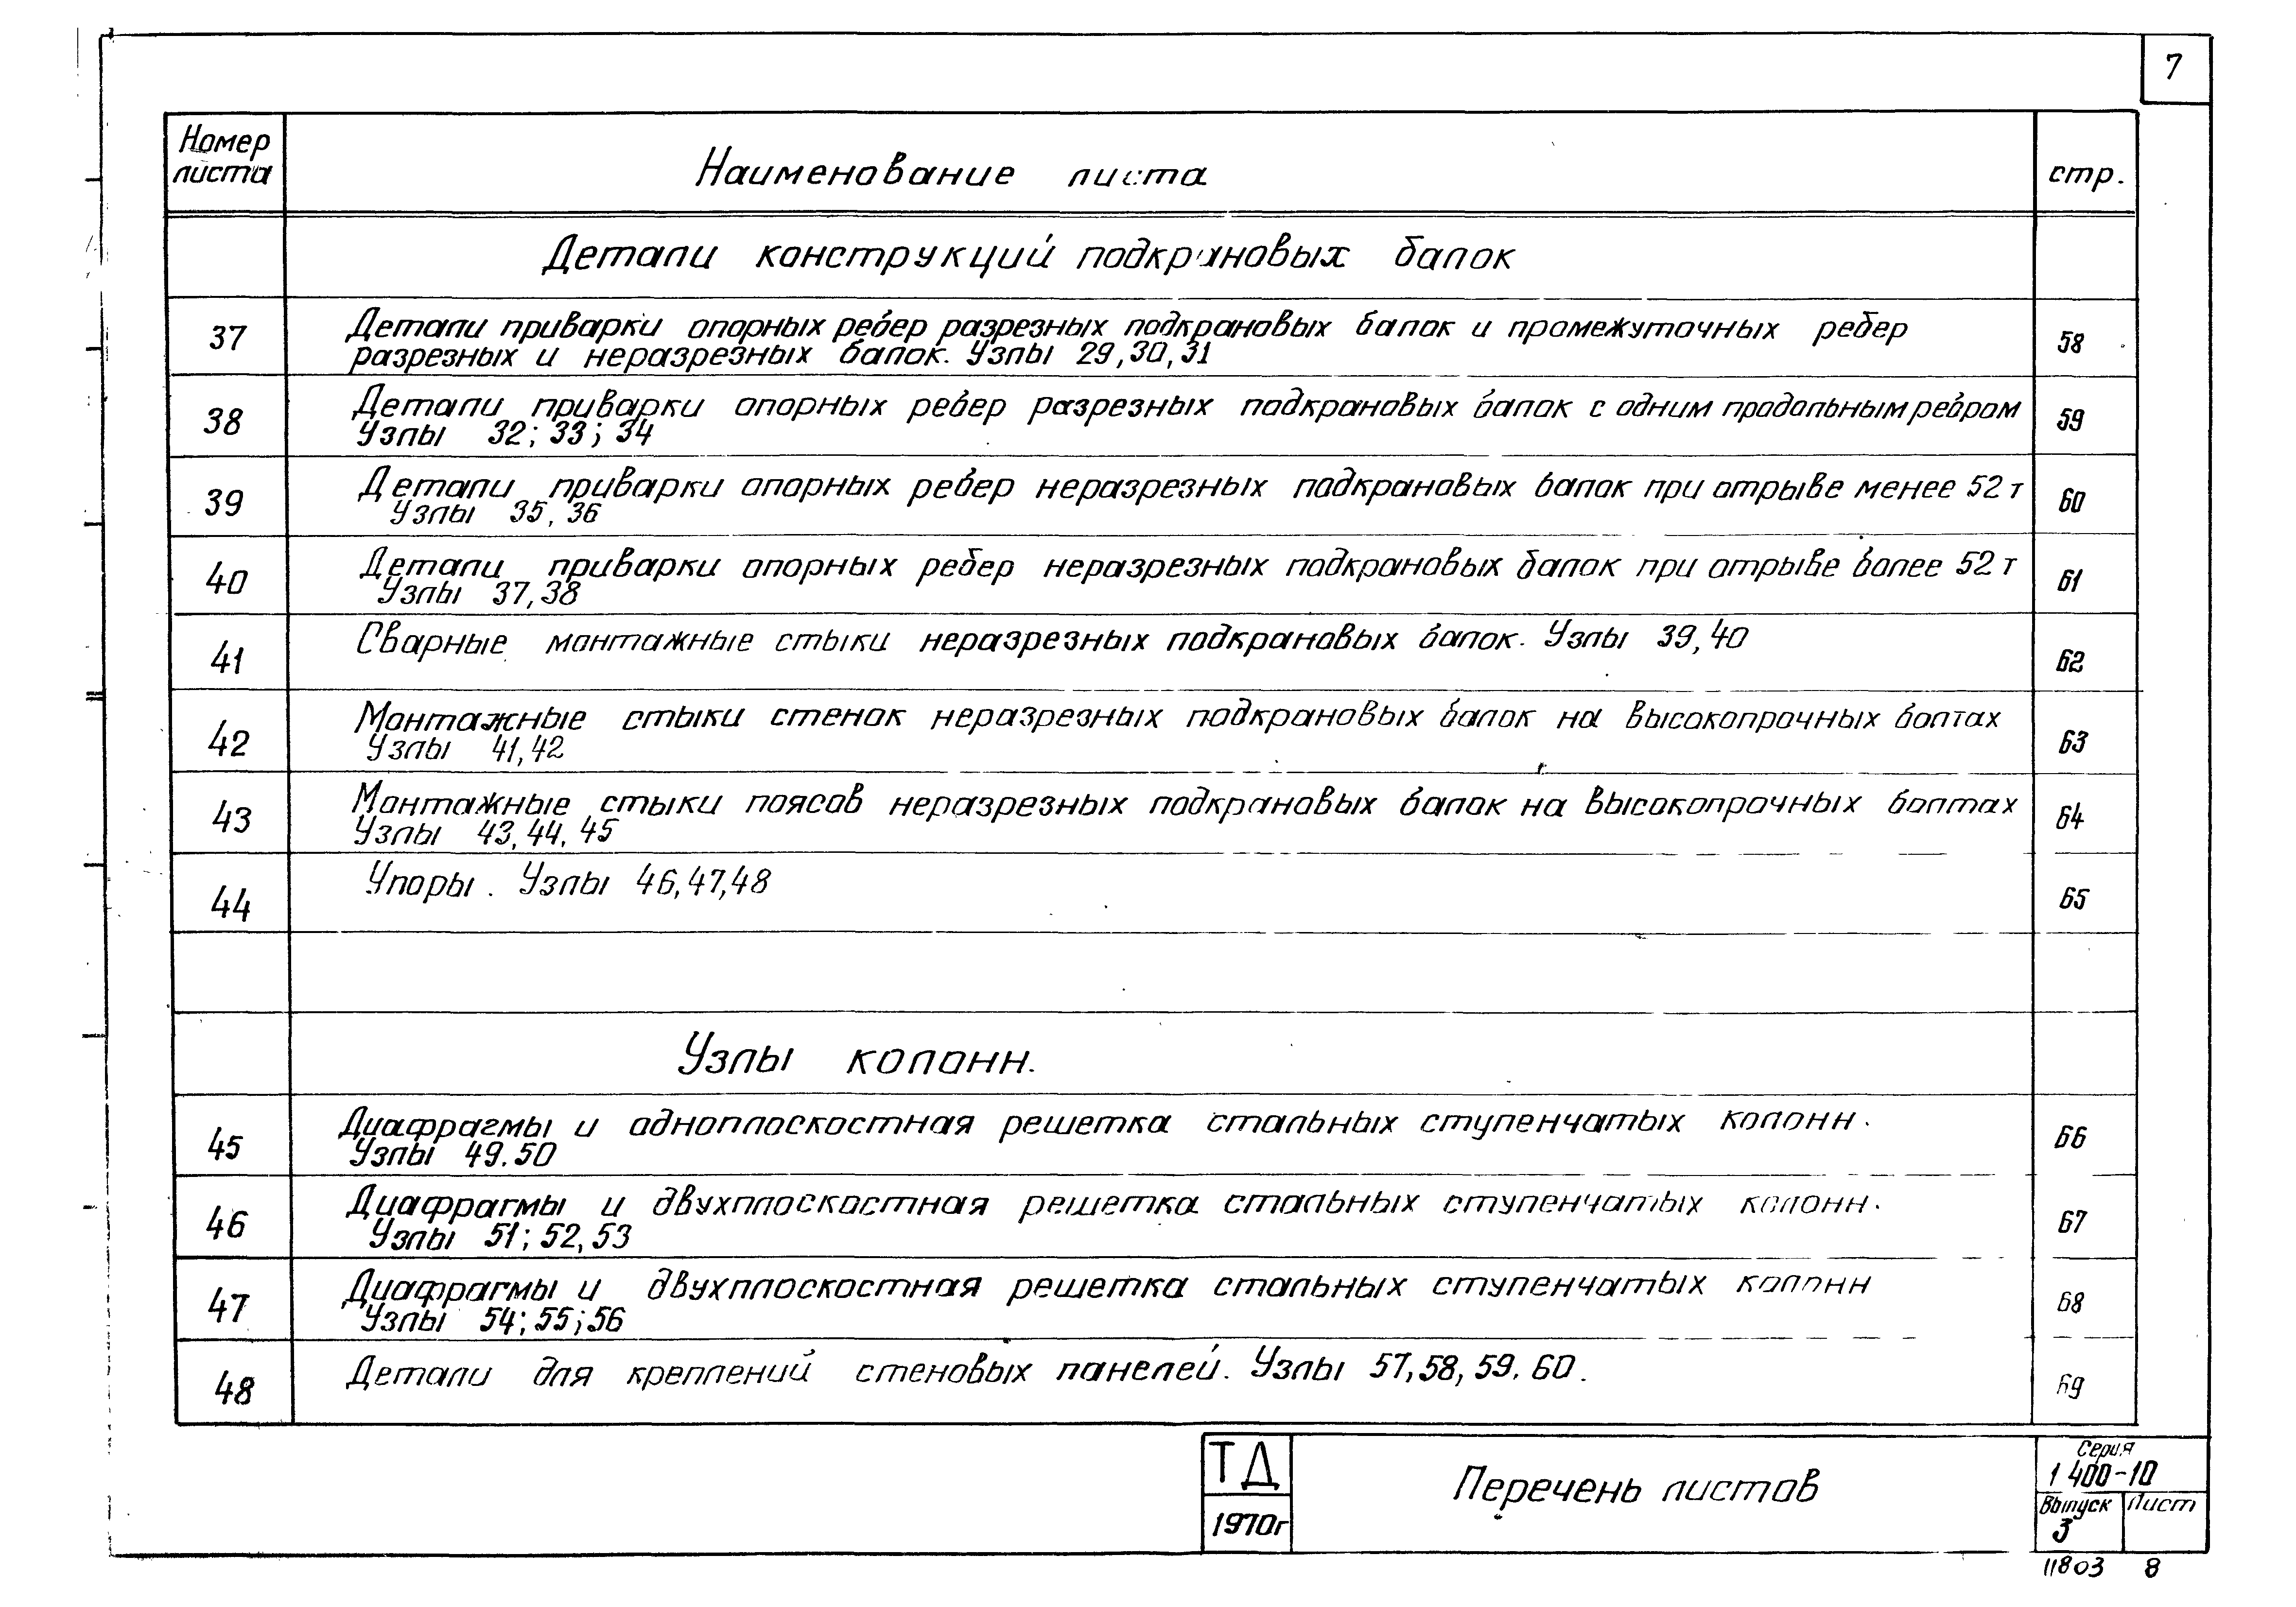 7
Номер
листа
Наименование листа
стр.
Детали конструкций подкрановых балок
37
Детали приварки опорных ребер разрезных подкрановых балок и промежуточных ребер
разрезных и неразрезных балок. Узлы 29,30,31
58
38
Детали приварки опорных ребер разрезных подкрановых балок с одним продольным ребром
Узлы 32; 33; 34
59
39
Детали приварки опорных ребер неразрезных подкрановых балок при отрыве менее 52 т
Узлы 35, 36
60
40
Детали приварки опорных ребер неразрезных подкрановых балок при отрыве более 52 т
Узлы 37,38
61
41
Сварные монтажные стыки неразрезных подкрановых балок. Узлы 39,40
62
42
Монтажные стыки стенок неразрезных подкрановых балок на высокопрочных болтах
Узлы 41,42
63
43
Монтажные стыки поясов неразрезных подкрановых балок на высокопрочных болтах
Узлы 43,44,45
64
44
Упоры. Узлы 46,47,48
65
Узлы колонн.
45
Диафрагмы и одноплоскостная решетка стальных ступенчатых колонн.
Узлы 49.50
66
46
Диафрагмы и двухплоскостная решетка стальных ступенчатых колонн.
Узлы 51; 52,53
67
47
Диафрагмы и двухплоскостная решетка стальных ступенчатых колонн
Узлы 54; 55; 56
68
48
Детали для креплений стеновых панелей. Узлы 57,58,59.60.
69
ТД
1970г
Перечень листов
Серия
1 400-10
Выпуск Лист
3
11803 8